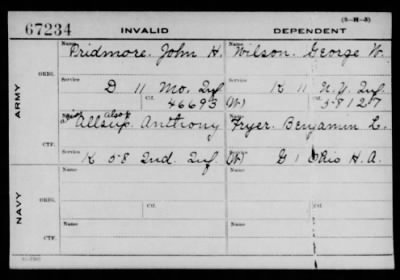 (3-H-3)
67234 INVALID DEPENDENT
Name Pridmore. John H. Name Wilson. George W.
ORIG.
Service D 11 Mo. Inf Service K 11 N.Y. Inf.
Ctf. 46693 (W) Ctf. 58127
ARMY
Name alias Allsup. Anthony Name Fryer. Benjamin L.
CTF.
Service K 58 Ind. Inf. (W) Service G 1 Ohio H.A.
Name Name
ORIG.
Ctf. Ctf.
NAVY
Name Name
CTF.